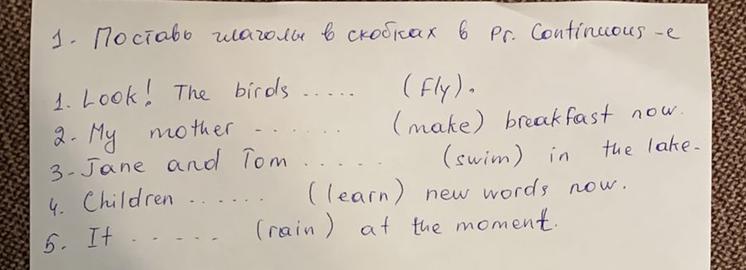 1. Поставь глаголы в скобках в Pr. Continuous -e
1. Look! The birds ..... (Fly).
2. My mother ...... (make) breakfast now.
3. Jane and Tom ..... (swim) in the lake.
4. Children ...... (learn) new words now.
5. It ..... (rain) at the moment.